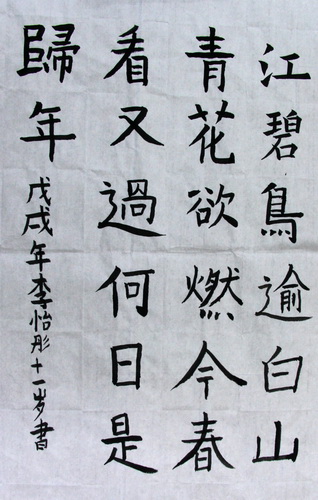 江碧鳥逾白山
青花欲燃今春
看又過何日是
歸年
戊戌年李怡彤十一岁書